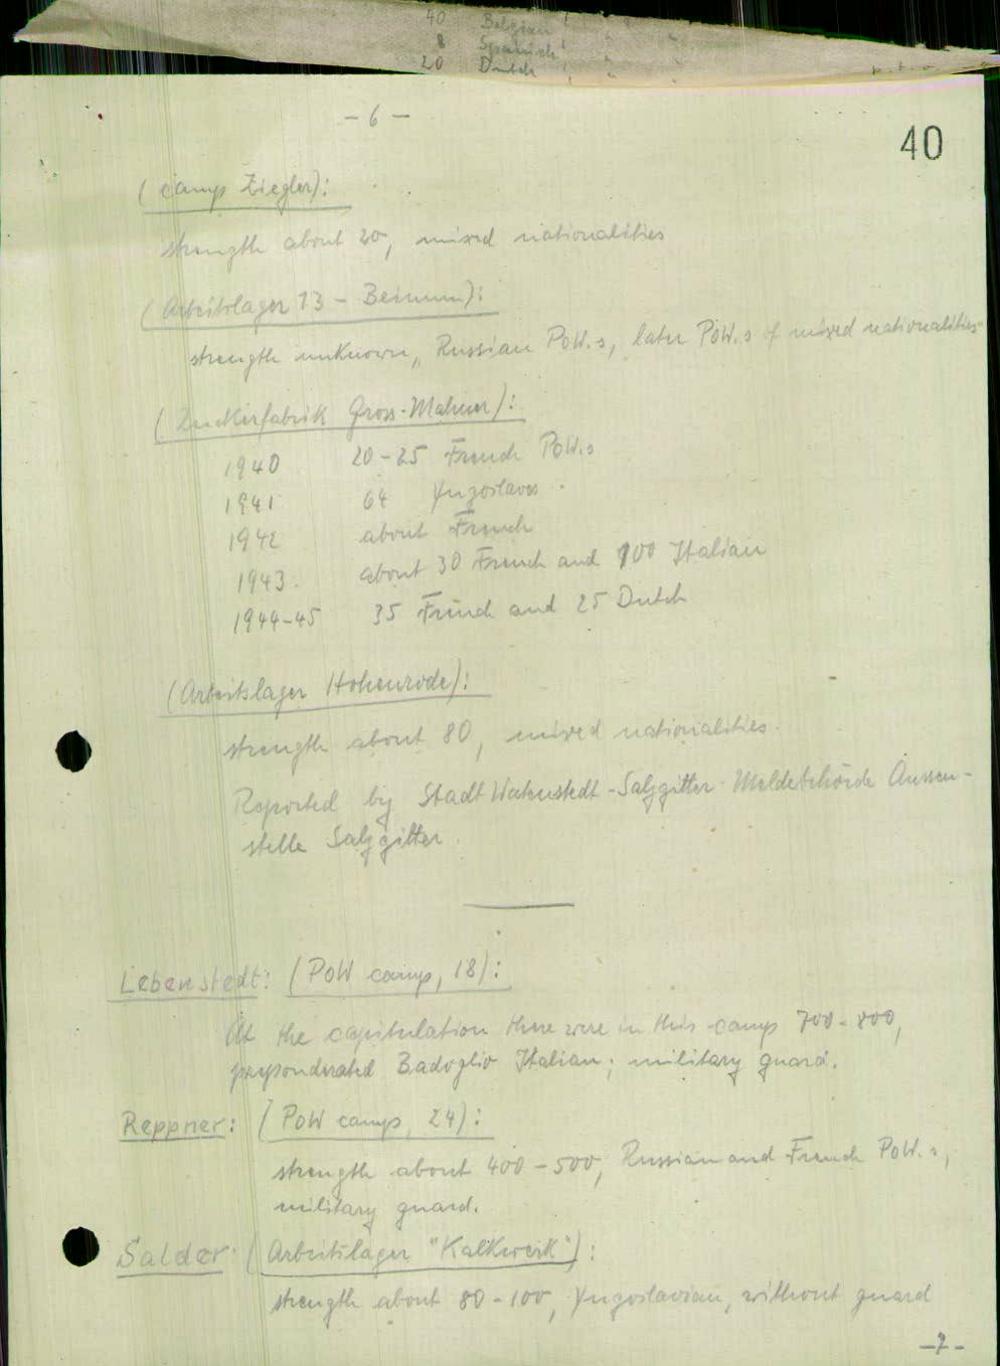 40 Belgian " "
8 Spanish " "
20 Dutch " "
- 6 -
40
(Camp Ziegler):
strength about 20, mixed nationalities
(Arbeitslager 13 - Beinum):
strength unknown, Russian PoW.s, later PoW.s of mixed nationalities
(Zuckerfabrik Gross-Mahner):
1940 20-25 French PoW.s
1941 64 Yugoslavs
1942 about French
1943. about 30 French and 100 Italian
1944-45 35 French and 25 Dutch
(Arbeitslager Hohenrode):
strength about 80, mixed nationalities.
Reported by Stadt Watenstedt-Salzgitter Meldebehörde Aussen-
stelle Salzgitter.
Lebenstedt: (PoW camp, 18):
At the capitulation there were in this camp 700-800,
preponderated Badoglio Italian; military guard.
Reppner: (PoW camp, 24):
strength about 400-500, Russian and French PoW.s,
military guard.
Salder: (Arbeitslager "Kalkwerk"):
strength about 80-100, Yugoslavian, without guard
-7-